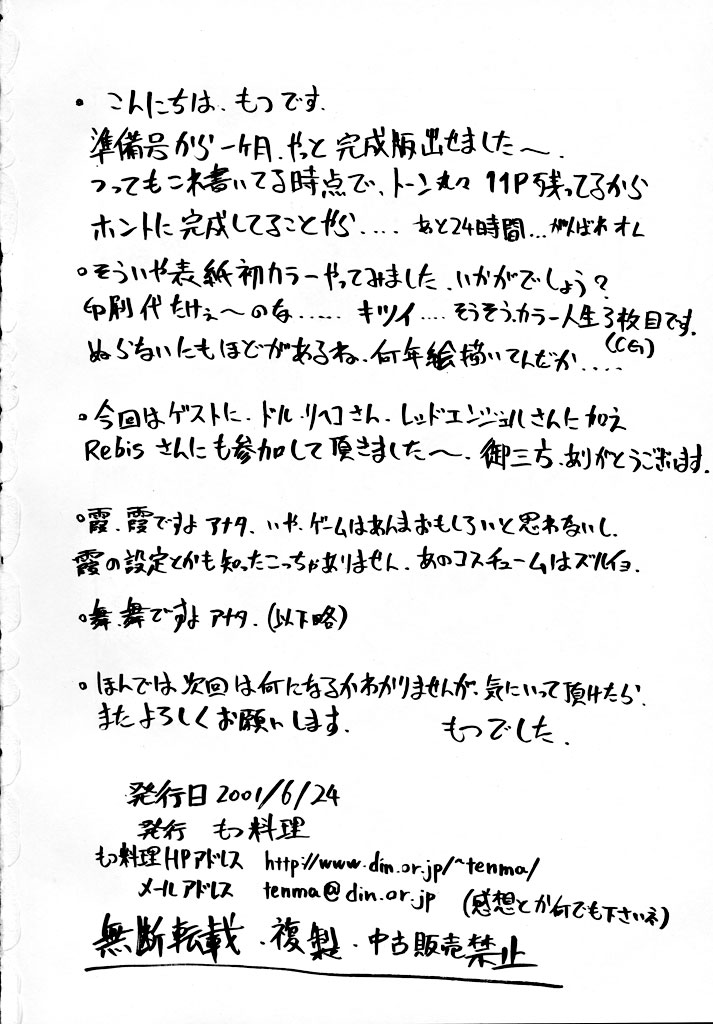 ・こんにちは、もつです。
準備号から一ヶ月、やっと完成版出せました〜。
つってもこれ書いてる時点で、トーン丸々11P残ってるから
ホントに完成してることやら.... あと24時間...がんばれオレ
・そういや表紙初カラーやってみました、いかがでしょう?
印刷代たけぇ〜のな...... キツイ.... そうそう、カラー人生3枚目です。
(CG)
ぬらないにもほどがあるね、何年絵描いてんだか....
・今回はゲストに、ドル・リヘコさん、レッドエンジェルさんに加え
Rebisさんにも参加して頂きました〜。御三方、ありがとうございます。
・霞、霞ですよアナタ、いや、ゲームはあんまおもしろいと思わないし、
霞の設定とかも知ったこっちゃありません、あのコスチュームはズルイョ。
・舞、舞ですよアナタ、(以下略)
・ほんでは次回は何になるかわかりませんが、気にいって頂けたら、
またよろしくお願いします。 もつでした。
発行日 2001/6/24
発行 もつ料理
もつ料理HPアドレス http://www.din.or.jp/~tenma/
メールアドレス tenma@din.or.jp (感想とか何でも下さいネ)
無断転載・複製・中古販売禁止